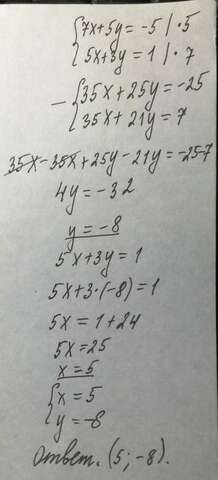 {7x+5y=-5 | ·5
{5x+3y=1 | ·7
-{35x+25y=-25
{35x+21y=7
35x-35x+25y-21y=-25-7
4y=-32
y=-8
5x+3y=1
5x+3·(-8)=1
5x=1+24
5x=25
x=5
{x=5
{y=-8
Ответ. (5;-8).